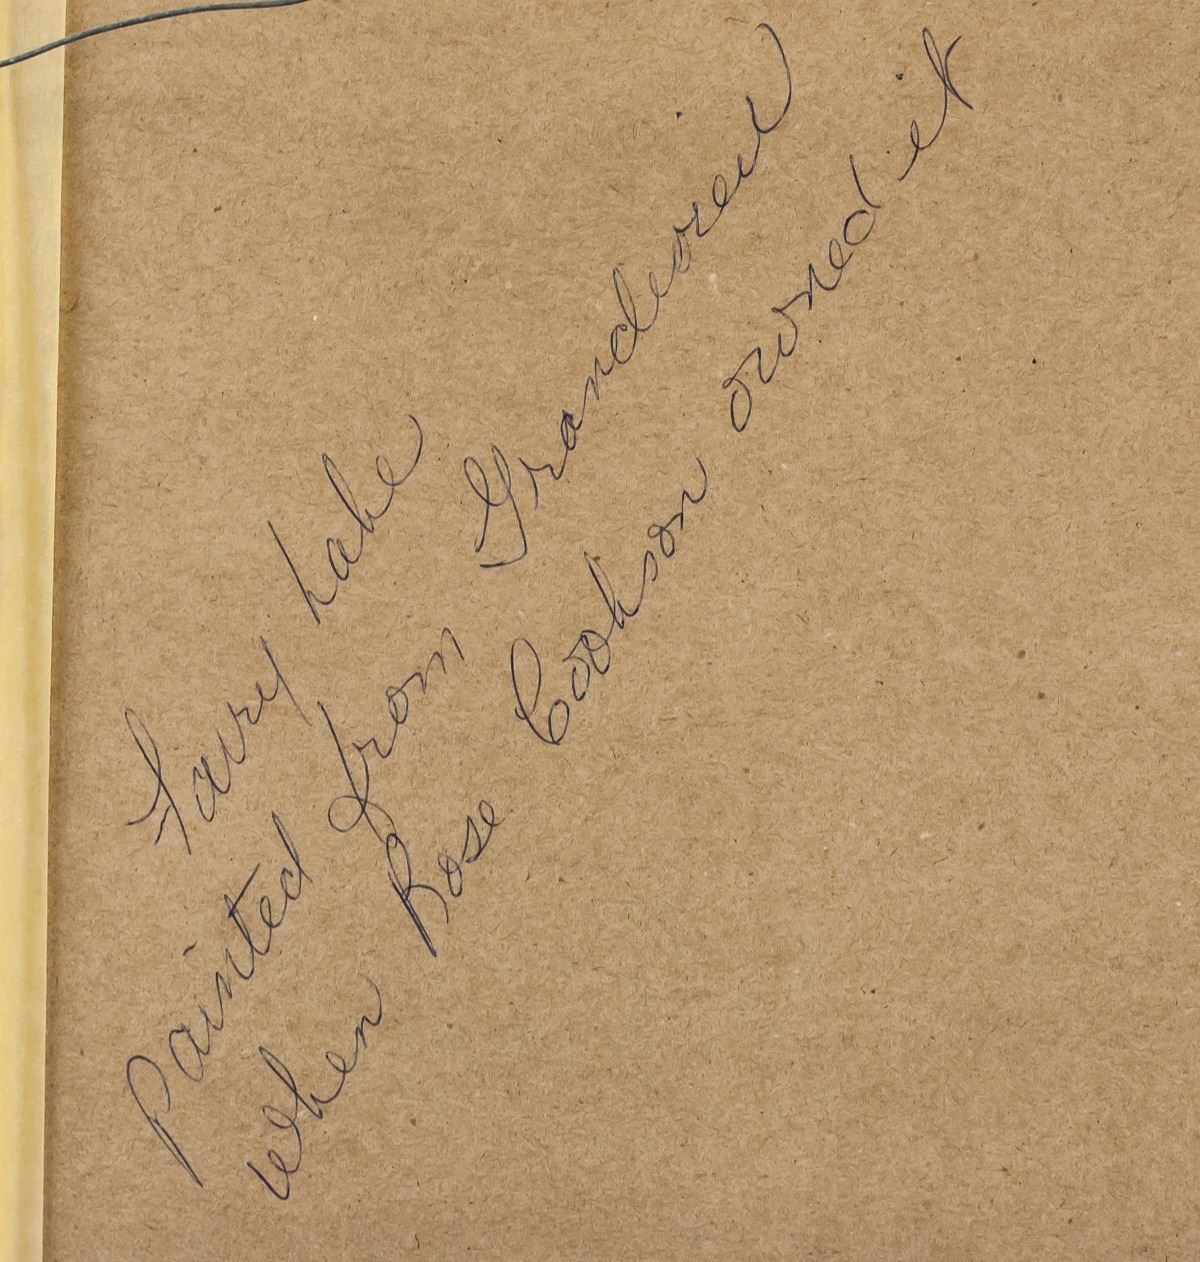 Fairy Lake
Painted from Grandview
When Rose Cookson owned it